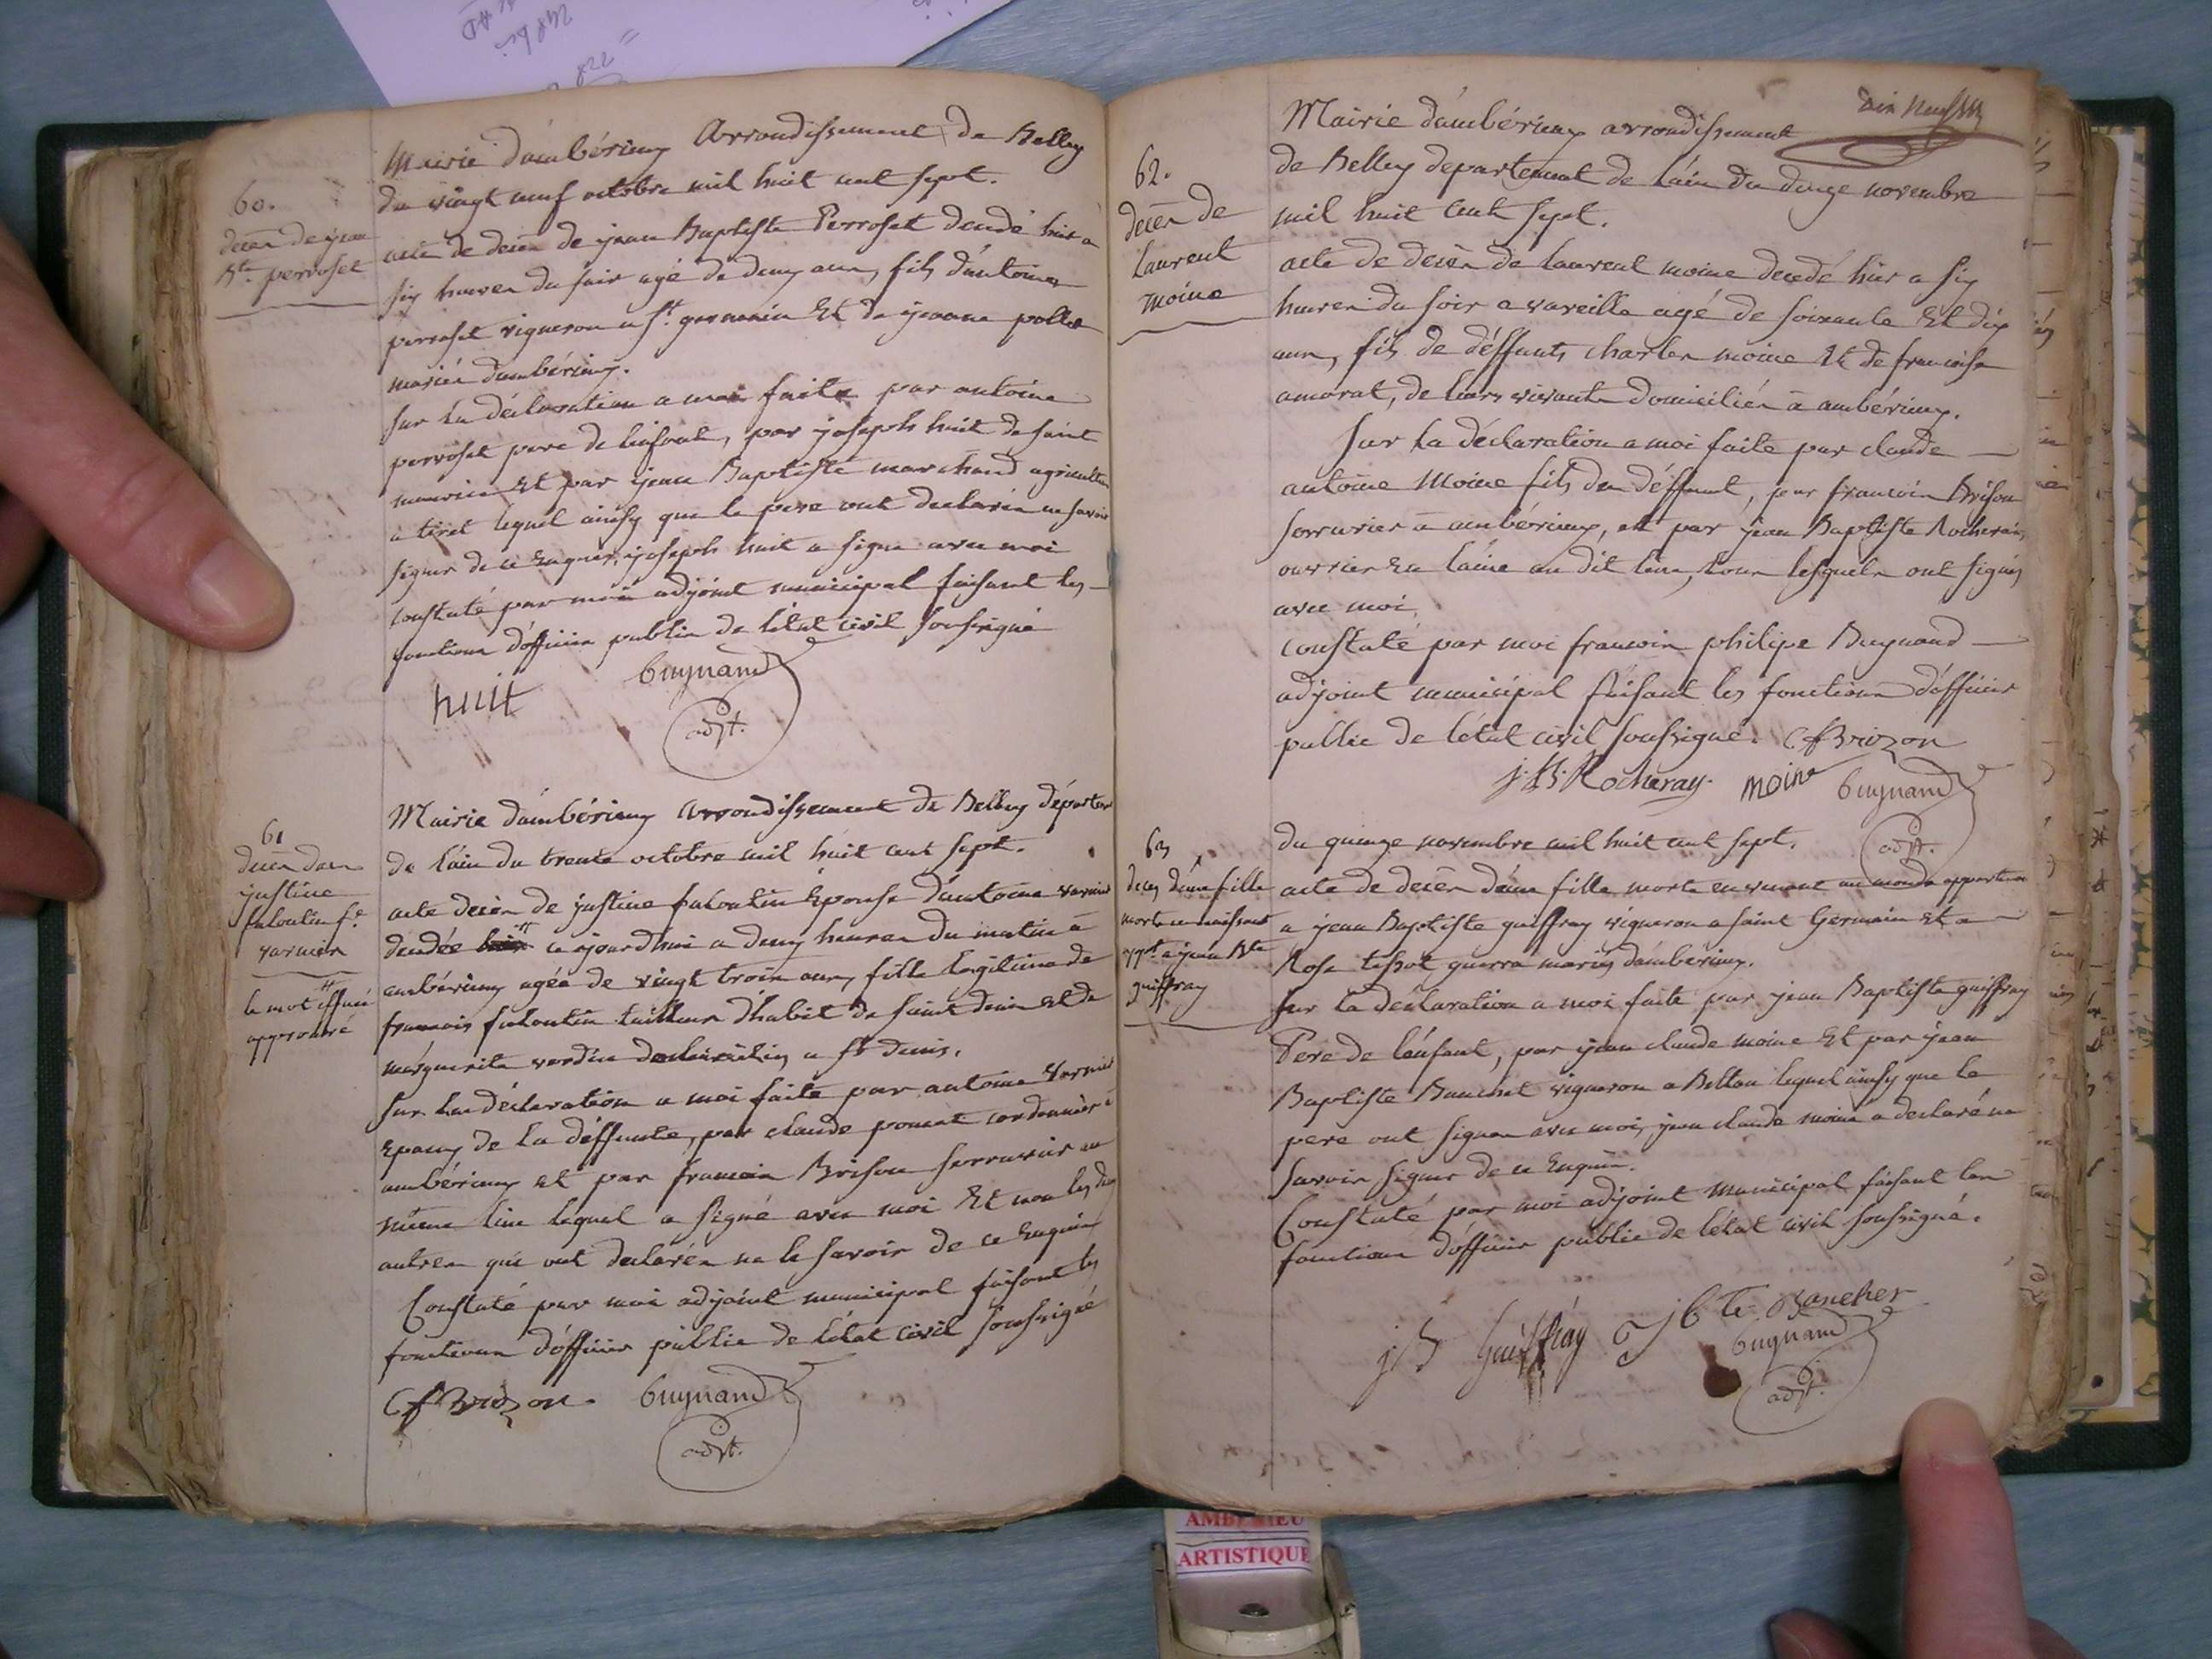 Mairie d'ambérieux Arrondissement de Belley
du vingt neuf octobre mil huit cent sept.
60.
decès de jean
Bte. perroset
acte de decès de jean Baptiste Perroset decedé hier a
six heures du soir agé de deux ans, fils d'antoine
perroset vigneron a St. germain Et de jeanne pollet
mariés d'ambérieux.
sur la déclaration a moi faite par antoine
perroset pere de l'enfant, par joseph huit de saint
maurice Et par jean Baptiste marchand agriculteur
a tiret lequel ainsy que le pere ont declarés ne savoir
signer de ce Enquis, joseph huit a signé avec moi
constaté par moi adjoint municipal faisant les
fonctions d'officier public de l'état civil soussigné
huit
bugnand
adjt.
Mairie d'ambérieux Arrondissement de Belley départem
de l'ain du trente octobre mil huit cent sept.
61
decès de
justine
fe.
varnier
le mot effacé
approuvé
acte decès de justine Epouse d'antoine varnier
decedée ce jourd'hui a deux heures du matin a
ambérieux agée de vingt trois ans, fille legitime de
francois tailleur d'habit de saint denis Et de
marguerite verdin domiciliés a St denis.
sur la déclaration a moi faite par antoine varnier
Epoux de la déffunte, par claude poncet cordonnier a
ambérieux et par francois Brison serrurier au
même lieu lequel a signé avec moi Et non les deux
autres qui ont declarés ne le savoir de ce Enquis
Constaté par moi adjoint municipal faisant les
fonctions d'officier public de l'état civil soussigné
Cf Brizon.
bugnand
adjt.
Mairie d'ambérieux arrondissement
de Belley departement de l'ain du douze novembre
mil huit cent sept.
62.
decès de
laurent
moine
acte de decès de laurent moine decedé hier a six
heures du soir a vareille agé de soixante Et dix
ans, fils de déffunts charles moine Et de francoise
amorat, de leurs vivants domiciliés a ambérieux.
Sur la déclaration a moi faite par claude
antoine Moine fils du déffunt, par francois Brison
serrurier a ambérieux, et par jean Baptiste Rocherai,
ouvrier En laine au dit lieu, tous lesquels ont signés
avec moi,
constaté par moi francois philipe Bugnand
adjoint municipal faisant les fonctions d'officier
public de l'état civil soussigné. Cf Brizon
j. B. Rocheray. moine bugnand
adjt.
du quinze novembre mil huit cent sept.
63
deces d'une fille
morte en naissant
appt. a jean Bte
guiffray
acte de decès d'une fille morte en venant au monde appartenan
a jean Baptiste guiffray vigneron a saint Germain Et a
Rose tissot guerra mariés d'ambérieux.
sur la déclaration a moi faite par jean Baptiste guiffray
Pere de l'enfant, par jean claude moine Et par jean
Baptiste Banchet vigneron a Bettan lequel ainsy que le
pere ont signés avec moi, jean claude moine a declaré ne
savoir signer de ce Enquis.
Constaté par moi adjoint municipal faisant les
fonctions d'officier public de l'état civil soussigné.
j B Guiffray J bte Bancher
bugnand
adjt.
AMBERIEU
ARTISTIQUE